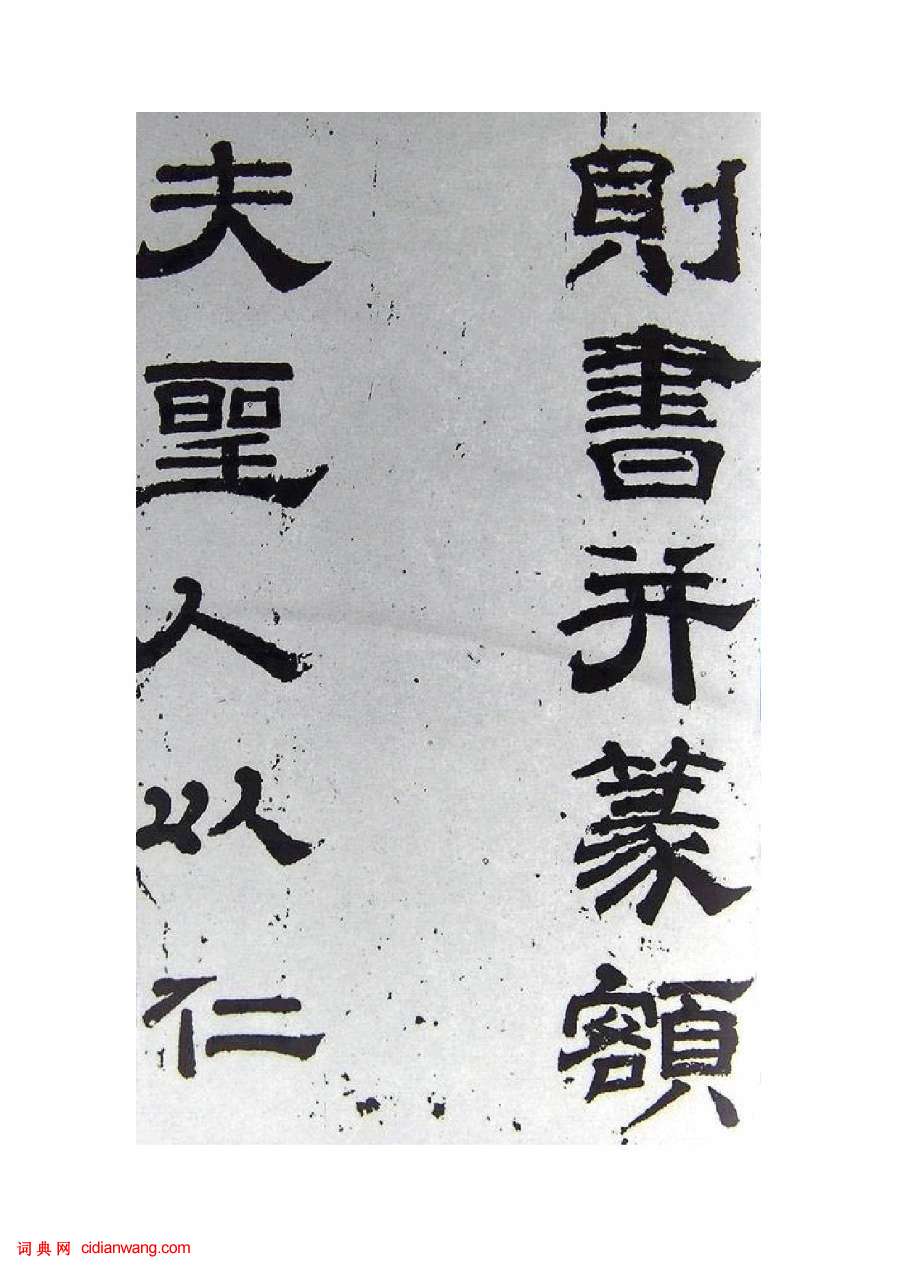 則書并篆額
夫聖人以仁
词典网 cidianwang.com